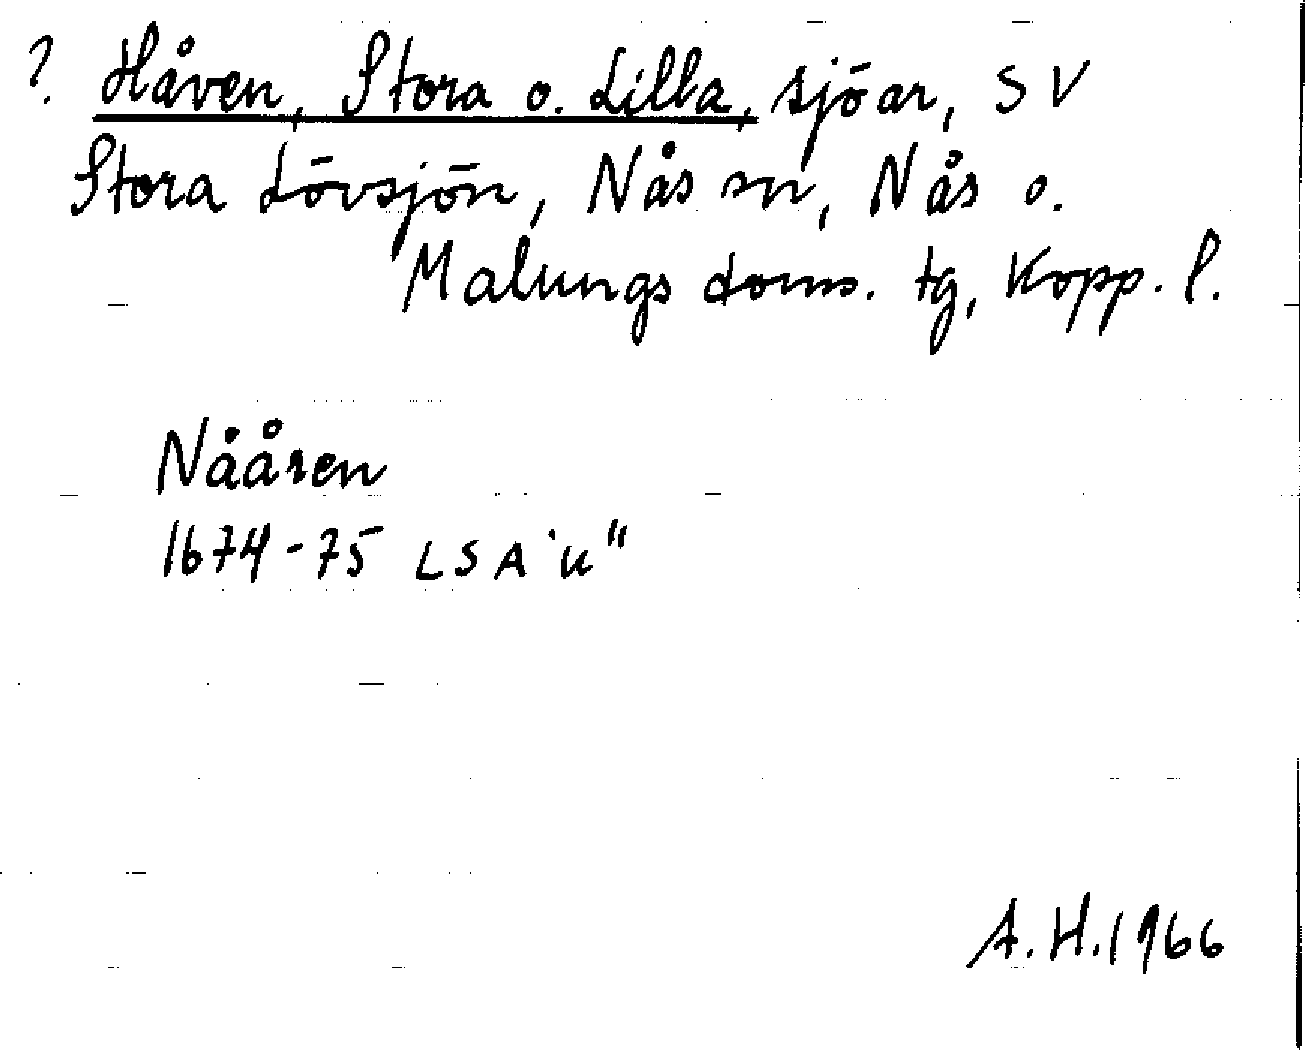 ? Håven, Stora o. Lilla, sjöar, SV
Stora Lövsjön, Nås sn, Nås o.
Malungs doms. tg, Kopp. l.
Nååren
1674-75 LSA "U"
A.H. 1966